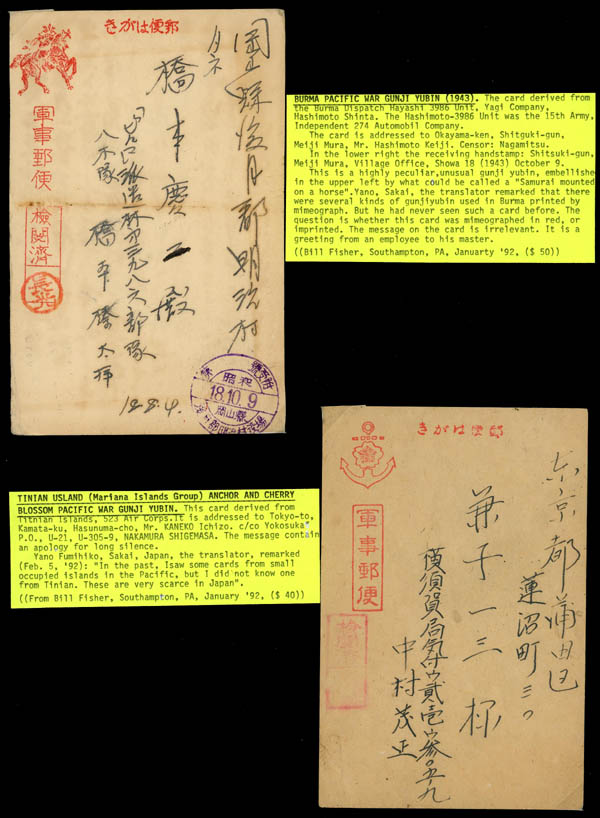 きがは便郵
岡山縣後月郡明治村
橋本慶二殿
林第三九八六部隊
八木隊 橋本
軍事郵便
検閲済
18.8.4.
18.10.9
BURMA PACIFIC WAR GUNJI YUBIN (1943). The card derived from
the Burma Dispatch Hayashi 3986 Unit, Yagi Company,
Hashimoto Shinta. The Hashimoto-3986 Unit was the 15th Army,
Independent 274 Automobil Company.
The card is addressed to Okayama-ken, Shitguki-gun,
Meiji Mura, Mr. Hashimoto Keiji. Censor: Nagamitsu.
In the lower right the receiving handstamp: Shitsuki-gun,
Meiji Mura, Village Office, Showa 18 (1943) October 9.
This is a highly peculiar,unusual gunji yubin, embellished
in the upper left by what could be called a "Samurai mounted
on a horse".Yano, Sakai, the translator remarked that there
were several kinds of gunjiyubin used in Burma printed by
mimeograph. But he had never seen such a card before. The
question is whether this card was mimeographed in red, or
imprinted. The message on the card is irrelevant. It is a
greeting from an employee to his master.
((Bill Fisher, Southampton, PA, January '92, ($ 50))
TINIAN USLAND (Mariana Islands Group) ANCHOR AND CHERRY
BLOSSOM PACIFIC WAR GUNJI YUBIN. This card derived from
Titnian Islands, 523 Air Corps.It is addressed to Tokyo-to,
Kamata-ku, Hasunuma-cho, Mr. KANEKO Ichizo. c/co Yokosuka
P.O., U-21, U-305-9, NAKAMURA SHIGEMASA. The message contain
an apology for long silence.
Yano Fumihiko, Sakai, Japan, the translator, remarked
(Feb. 5, '92): "In the past, Isaw some cards from small
occupied islands in the Pacific, but I did not know one
from Tinian. These are very scarce in Japan".
((From Bill Fisher, Southampton, PA, January '92, ($ 40))
きがは便郵
東京都蒲田区
蓮沼町三〇
兼子一三様
横須賀局気付ウ貳壱ウ参〇五ノ九
中村茂正
軍事郵便